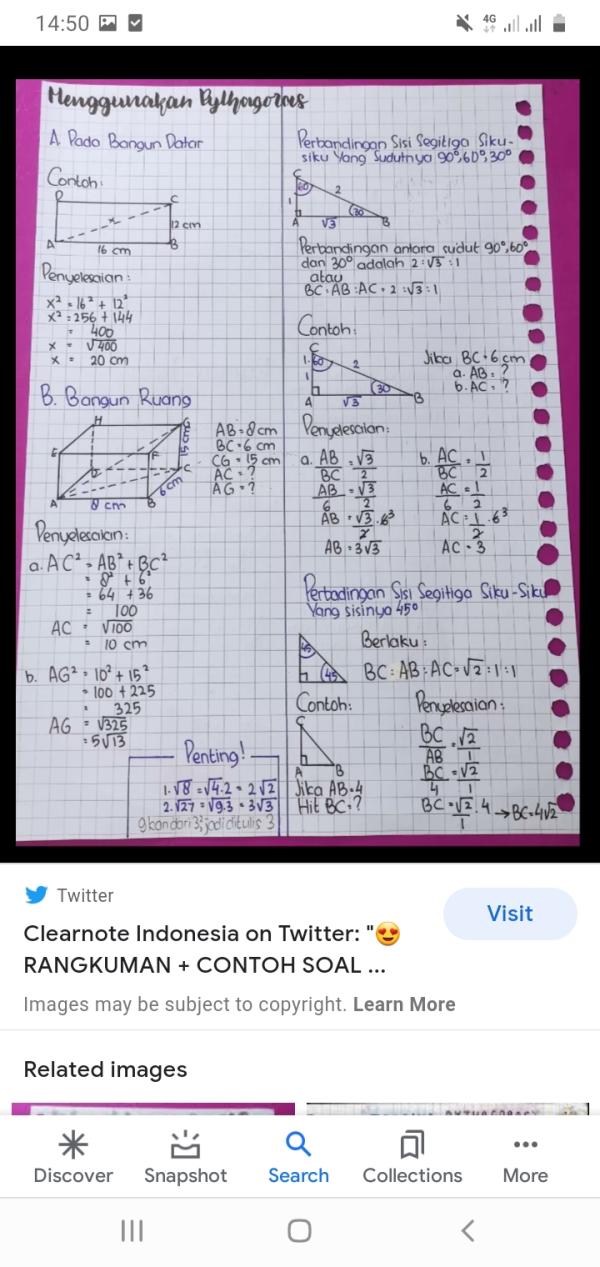 14:50
4G
Menggunakan Pythagoras
A. Pada Bangun Datar
Contoh:
D
C
x
12 cm
A
B
16 cm
Penyelesaian:
x² = 16² + 12²
x² = 256 + 144
= 400
x = √400
x = 20 cm
B. Bangun Ruang
H
G
E
F
D
C
A
B
8 cm
6 cm
15 cm
AB = 8 cm
BC = 6 cm
CG = 15 cm
AC = ?
AG = ?
Penyelesaian:
a. AC² = AB² + BC²
= 8² + 6²
= 64 + 36
= 100
AC = √100
= 10 cm
b. AG² = 10² + 15²
= 100 + 225
= 325
AG = √325
= 5√13
Penting!
1. √8 = √4.2 = 2√2
2. √27 = √9.3 = 3√3
9 kan dari 3², jadi ditulis 3
Perbandingan Sisi Segitiga Siku-
siku Yang Sudutnya 90°,60°,30°
C
60
2
1
30
A
√3
B
Perbandingan antara sudut 90°,60°
dan 30° adalah 2:√3:1
atau
BC:AB:AC = 2:√3:1
Contoh:
C
60
2
1
30
A
√3
B
Jika BC = 6 cm
a. AB = ?
b. AC = ?
Penyelesaian:
a. AB/BC = √3/2
AB/6 = √3/2
AB = √3/2 . 6³
AB = 3√3
b. AC/BC = 1/2
AC/6 = 1/2
AC = 1/2 . 6³
AC = 3
Perbadingan Sisi Segitiga Siku-Siku
Yang sisinya 45°
45
45
Berlaku:
BC:AB:AC = √2:1:1
Contoh:
C
A
B
Jika AB = 4
Hit BC = ?
Penyelesaian:
BC/AB = √2/1
BC/4 = √2/1
BC = √2/1 . 4 → BC = 4√2
Twitter
Visit
Clearnote Indonesia on Twitter: "😍
RANGKUMAN + CONTOH SOAL ...
Images may be subject to copyright. Learn More
Related images
Discover
Snapshot
Search
Collections
More